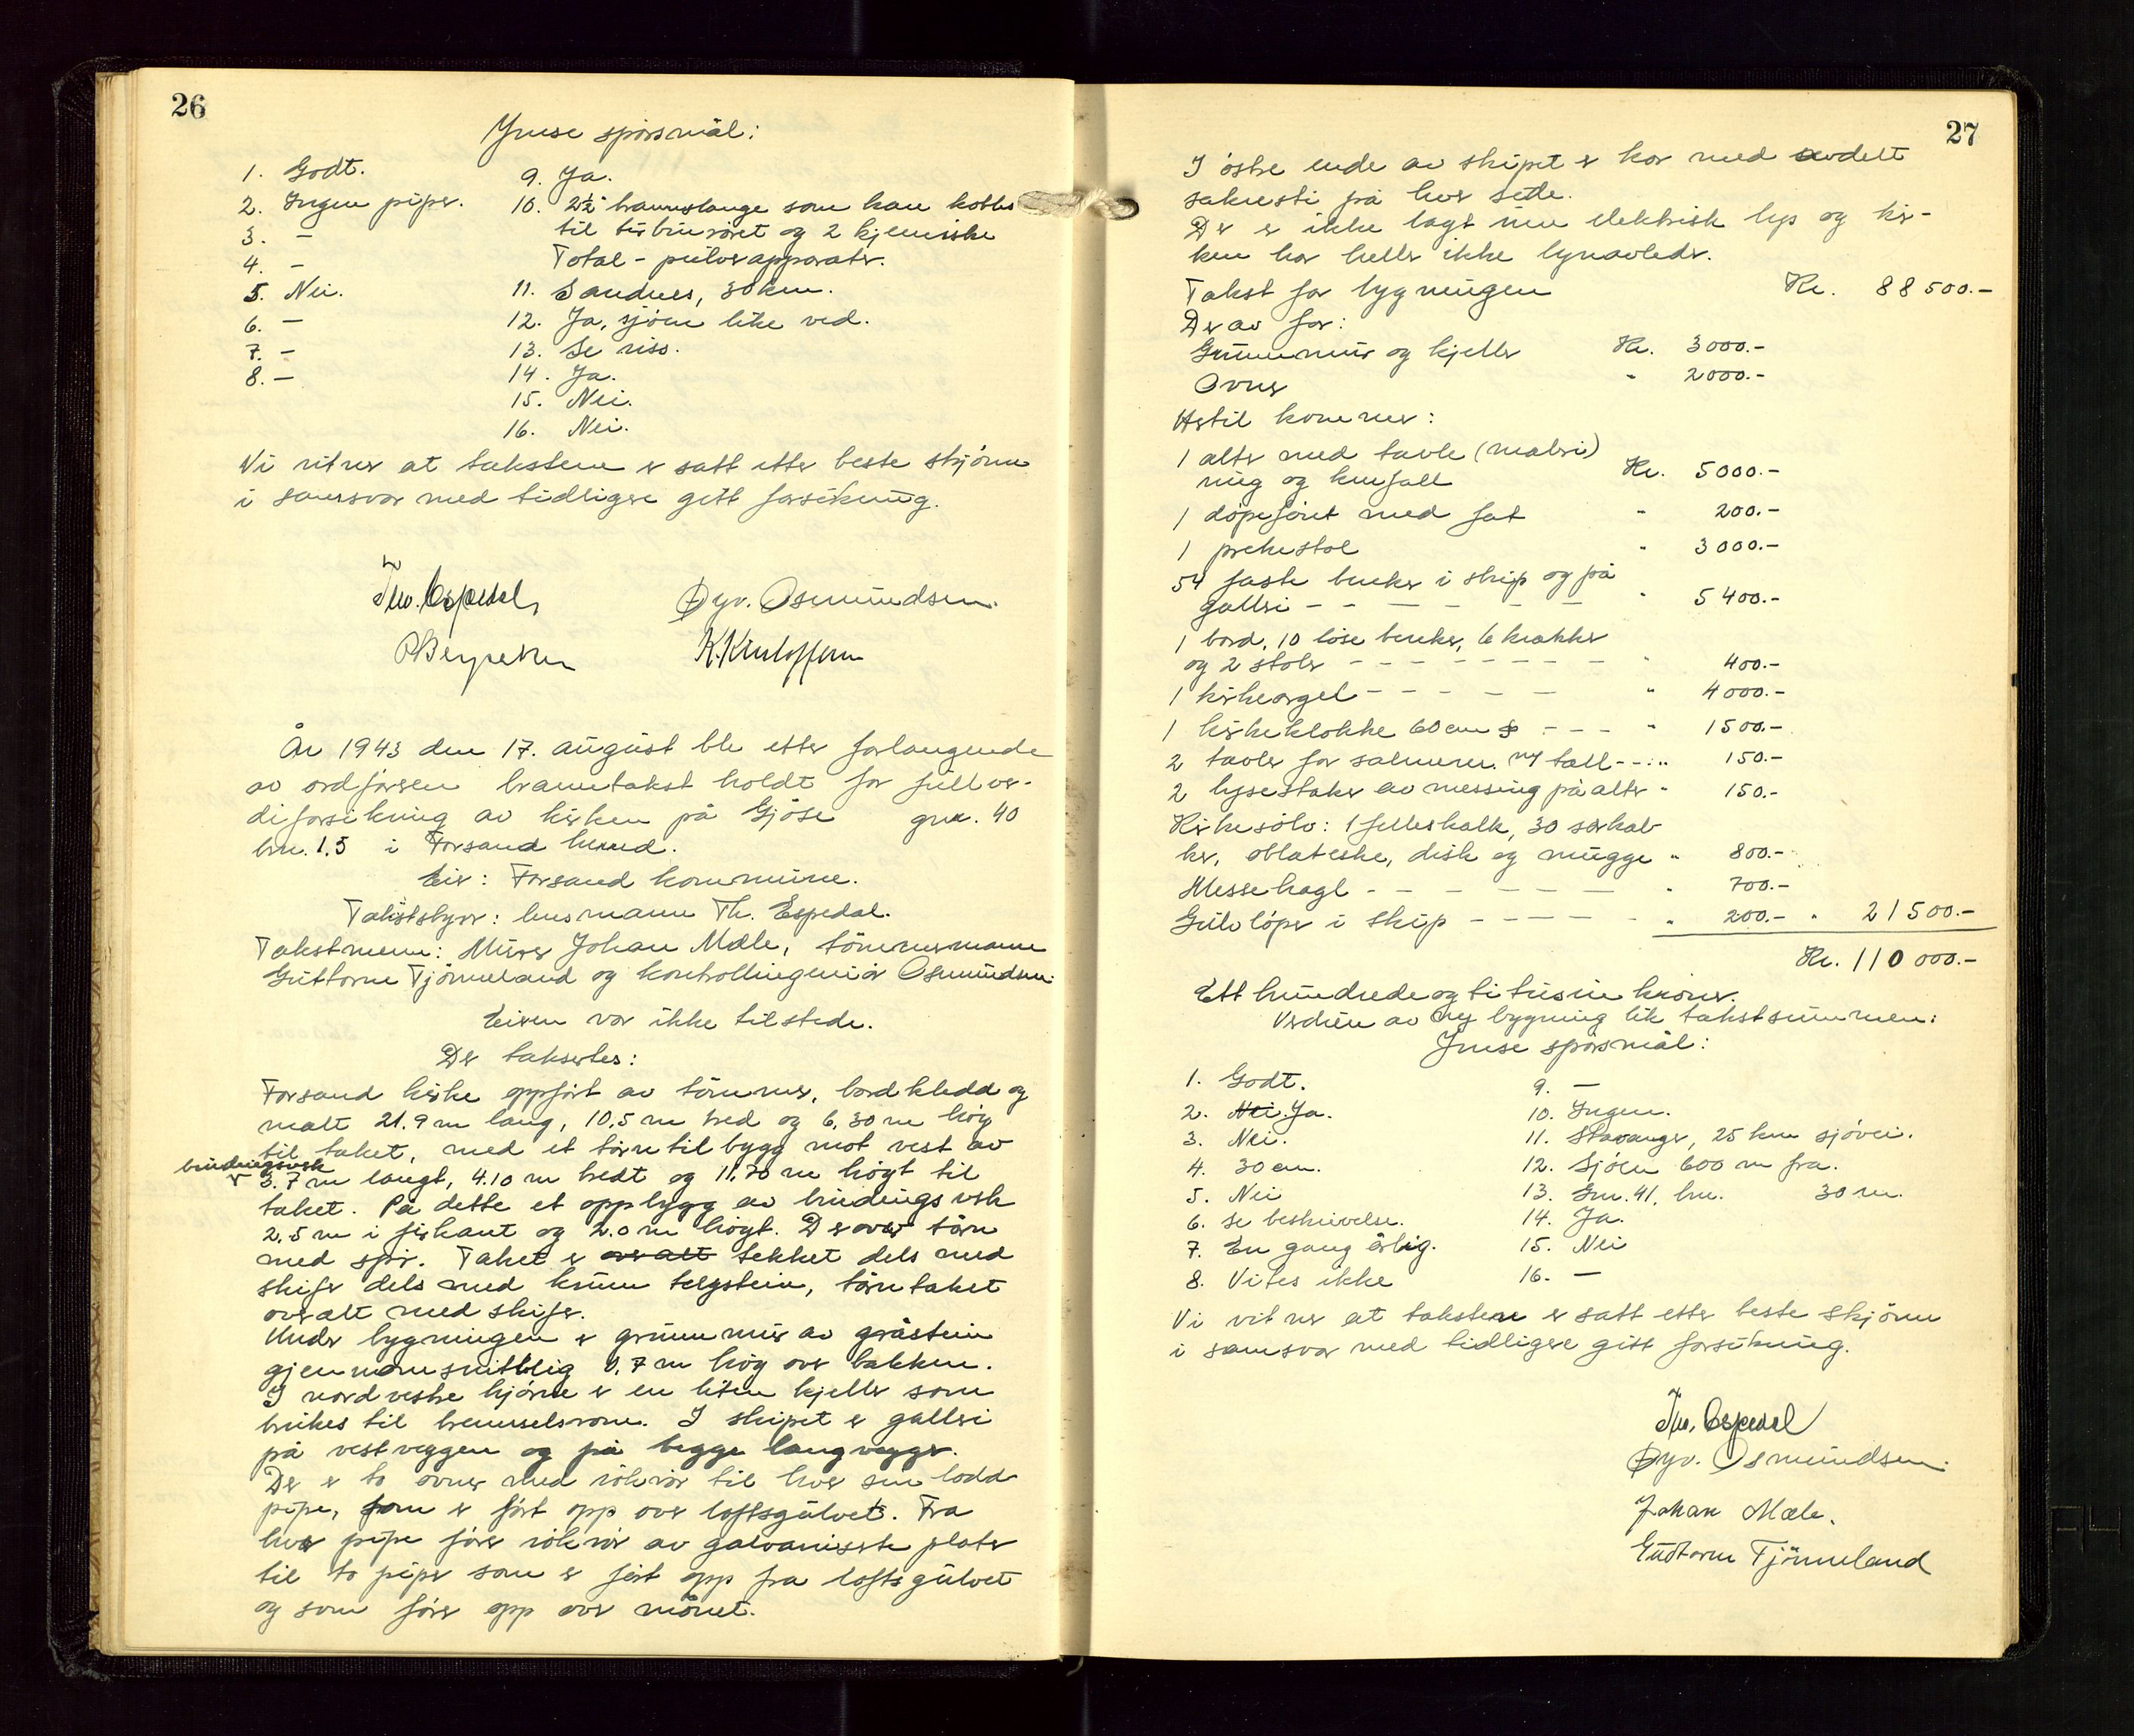 26
Ymse spörsmål:
1. Godt.
2. Ingen piper.
3. –
4. –
5. Nei.
6. –
7. –
8. –
9. Ja.
10. 2½" brannslange som kan kobles
til turbinröret og 2 kjemiske
Total - pulverapparater.
11. Sandnes, 30 km.
12. Ja, sjöen like ved.
13. Se riss.
14. Ja.
15. Nei.
16. Nei.
Vi vitner at takstene er satt etter beste skjönn
i samsvar med tidligere gitt forsikring.
Thv. Espedal, Öyv. Osmundsen.
År 1943 den 17. august ble etter forlangende
av ordföreren branntakst holdt for fullver-
diforsikring av kirken på Gjöse gnr. 40
brn. 1.5 i Forsand herred.
Eier: Forsand kommune.
Takstskyrer: lensmann Th. Espedal.
Takstmenn: Murer Johan Mæle, tömmermann
Guttorm Tjömeland og kontrollingeniör Osmundsen.
Eieren var ikke tilstede.
Der takseres:
Forsand kirke oppfört av tömmer, bordkledd og
malt 21.9 m lang, 10.5 m bred og 6.30 m höy
til taket, med et tårn tilbygg mot vest av
bindingsverk
3.7 m langt, 4.10 m bredt og 11.70 m höyt til
taket. På dette et oppbygg av bindingsverk
2.5 m i firkant og 2.0 m höyt. Derover tårn
med spir. Taket er overalt tekket dels med
skifer dels med krum teglstein, tårntaket
overalt med skifer.
Under bygningen er grunnmur av gråstein
gjennomsnittlig 0.7 m höy over bakken.
I nordvestre hjörne er en liten kjeller som
brukes til brennselsrom. I skipet er galleri
på vestveggen og på begge langvegger.
Der er to ovner med rökrör til hver sin lodd
pipe, som er fört opp over loftsgulvet. Fra
hver pipe förer rökrör av galvaniserte plater
til to piper som er fört opp fra loftsgulvet
og som förer opp over mönet.
27
I östre ende av skipet er kor med avdelt
sakresti på hver side.
Der er ikke lagt inn elektrisk lys og kir-
ken har heller ikke lynavleder.
Takst for bygningen Kr. 88 500.–
Derav for:
Grunnmur og kjeller Kr. 3000.–
Ovner " 2000.–
Hertil kommer:
1 alter med tavle (maleri)
ring og knefall Kr. 5000.–
1 döpefont med fat " 200.–
1 prekestol " 3000.–
54 faste benker i skip og på
galleri – – – – – – " 5400.–
1 bord, 10 löse benker, 6 krakker
og 2 stoler – – – – – – – – " 400.–
1 kirkeorgel – – – – – " 4000.–
1 kirkeklokke 60 cm ø – – – " 1500.–
2 tavler for salmenr. m/ tall – – " 150.–
2 lysestaker av messing på alter " 150.–
Kirkesölv: 1 felleskalk, 30 særkal-
ker, oblateske, disk og mugge " 800.–
Messehagl – – – – – – " 700.–
Gulvlöper i skip – – – – – " 200.– " 21500.–
Kr. 110 000.–
Ett hundrede og ti tusin kroner.
Verdien av ny bygning lik takstsummen:
Ymse spörsmål:
1. Godt.
2. Nei. Ja.
3. Nei.
4. 30 cm.
5. Nei
6. Se beskrivelse.
7. En gang årlig.
8. Vites ikke
9. –
10. Ingen.
11. Stavanger, 25 km sjövei.
12. Sjöen 600 m fra.
13. Gnr. 41, brn. 30 m.
14. Ja.
15. Nei
16. –
Vi vitner at taksten er satt etter beste skjönn
i samsvar med tidligere gitt forsikring.
Thv. Espedal
Öyv. Osmundsen.
Johan Mæle.
Guttorm Tjömeland